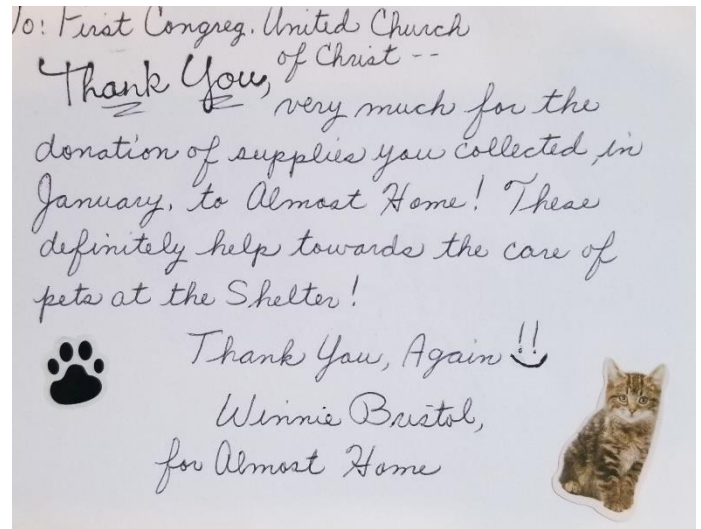 To: First Congreg. United Church
of Christ --
Thank You,
very much for the
donation of supplies you collected, in
January, to Almost Home! These
definitely help towards the care of
pets at the Shelter!
Thank You, Again!!
Winnie Bristol,
for Almost Home